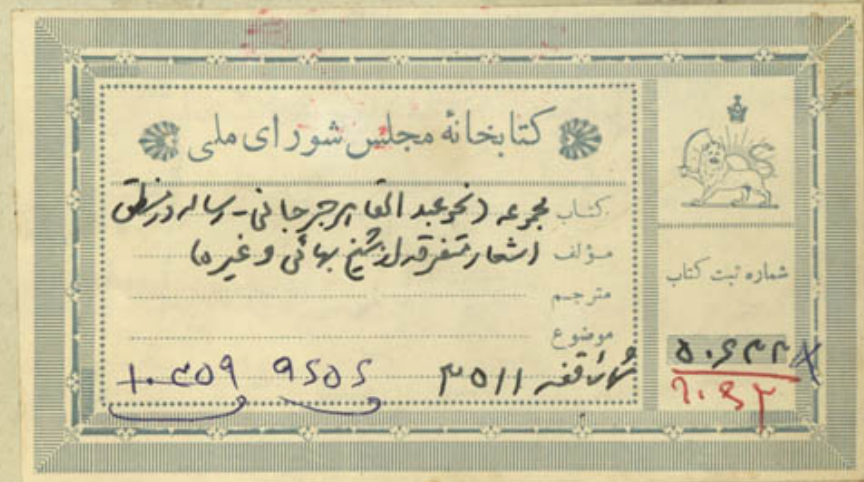 کتابخانهٔ مجلس شورای ملی
کتاب مجموعه (نحو عبدالقاهر جرجانی - رساله در منطق
مؤلف اشعار متفرقه از شیخ بهائی و غیره)
مترجم
موضوع
شماره قفسه ۳۵۱۱
۹۶۵۶
شماره ثبت کتاب